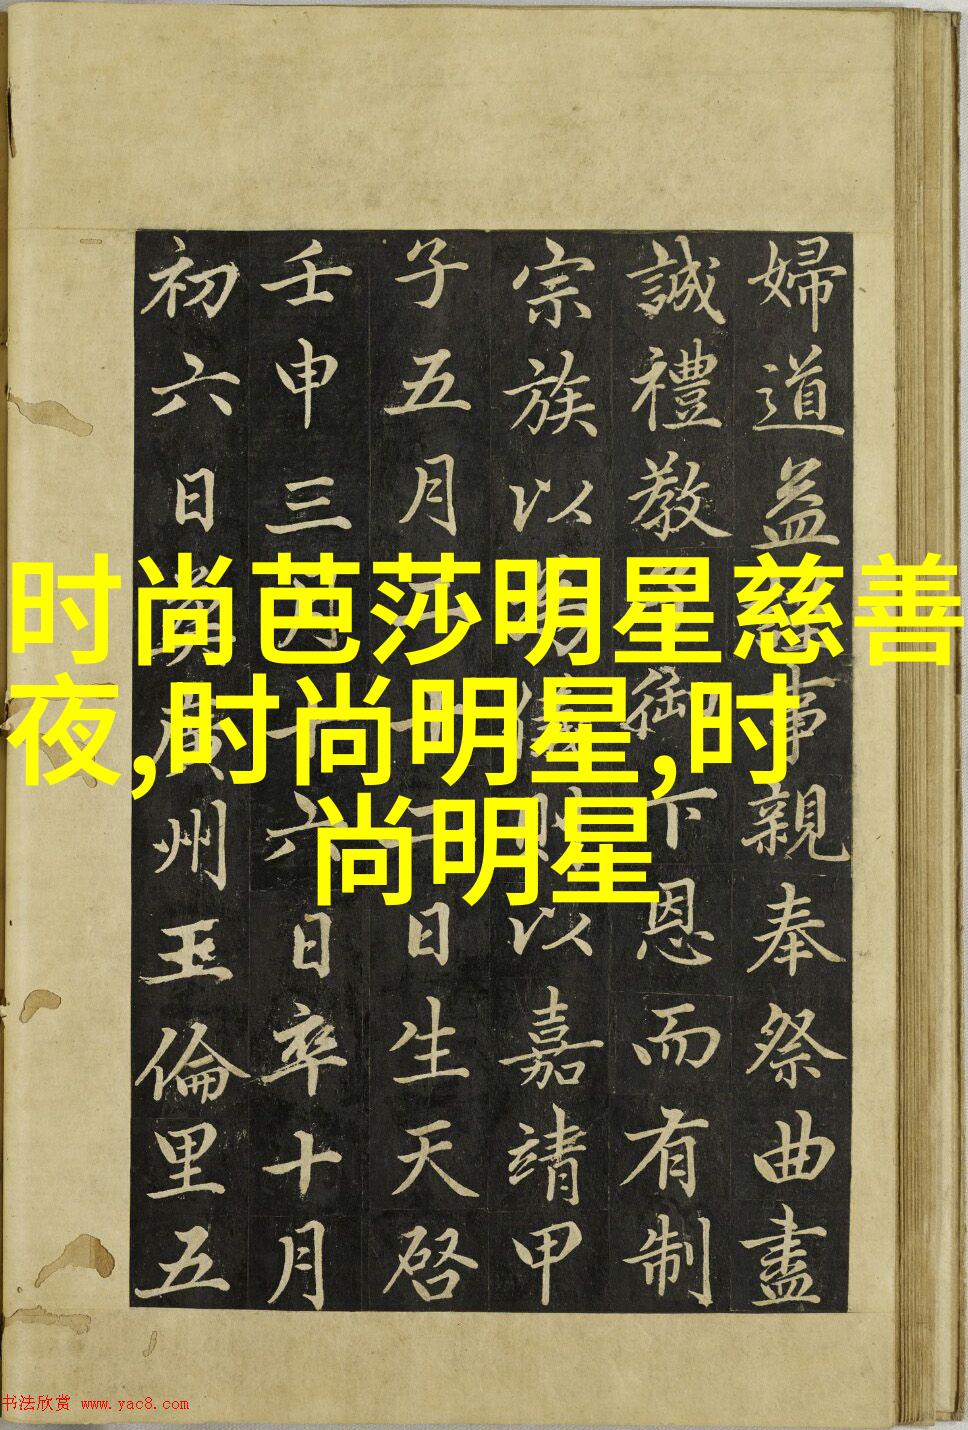 时尚芭莎明星慈善
夜,时尚明星,时
尚明星
婦道益事親奉祭曲盡
誠禮教御下恩而有制
宗族以為儀則以嘉靖甲
子五月十二日生天啓
壬申三月十六日卒十月
初六日葬廣州玉倫里五
书法欣赏 www.yac8.com